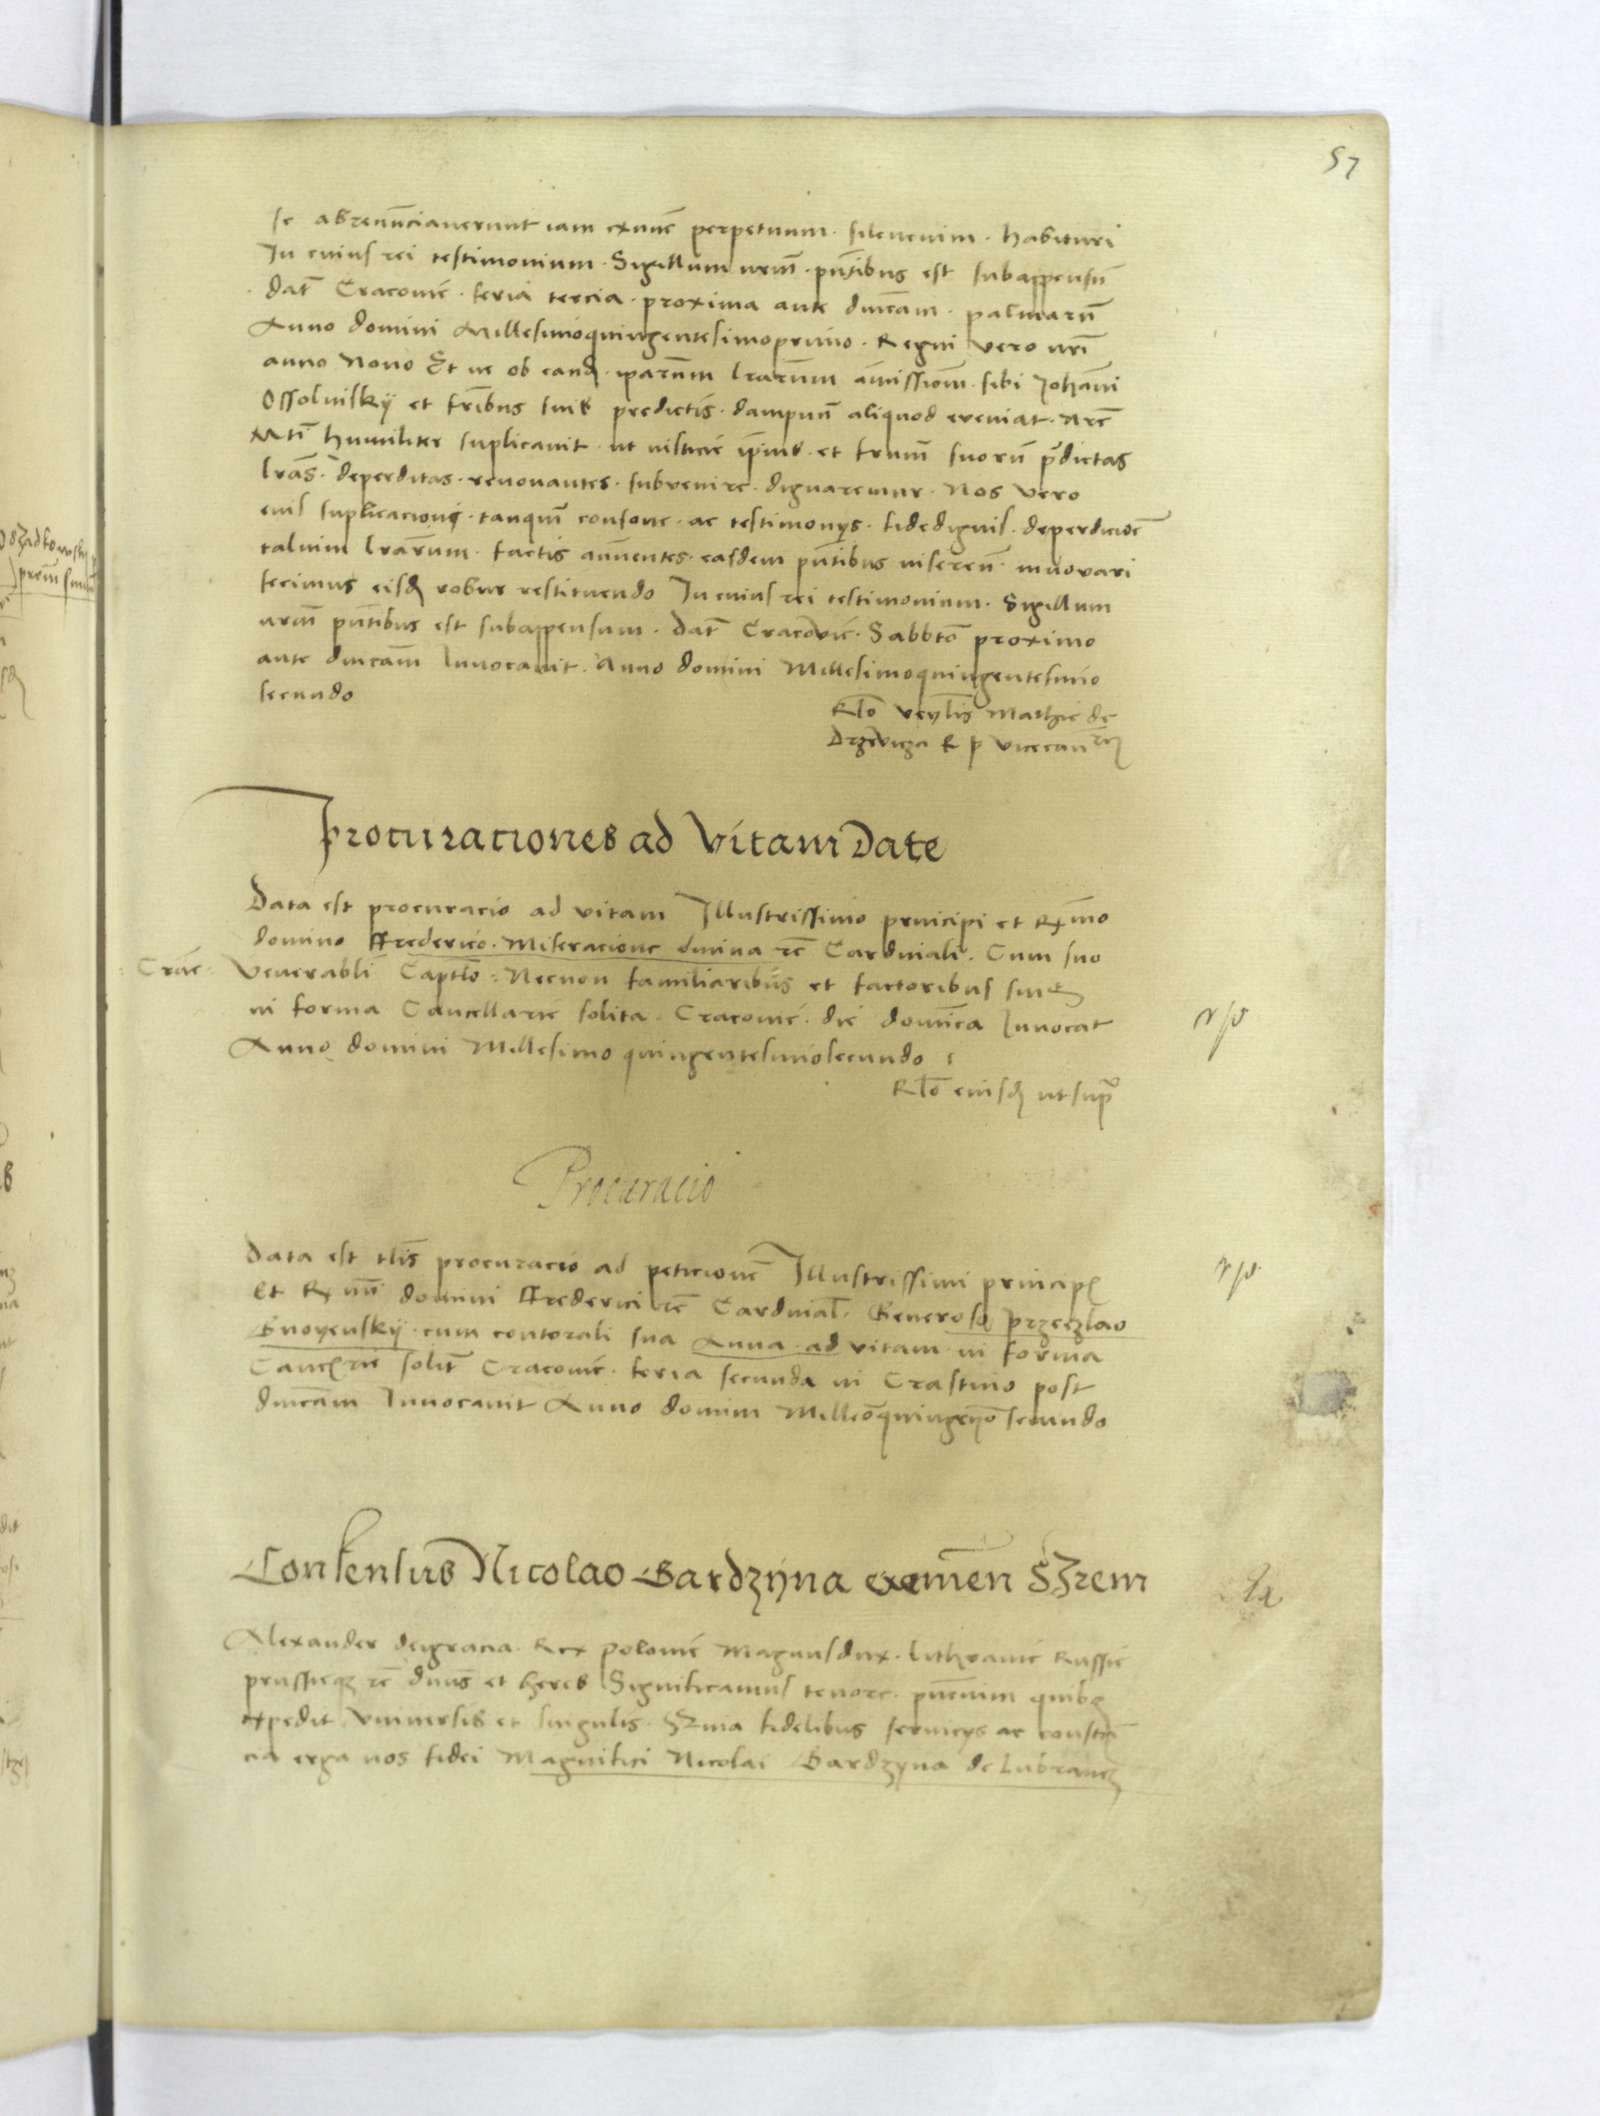 57
se abrenu̅ciaverunt iam exnu̅c perpetuum · silencium · habituri
In cuius rei testimonium · Sigillum nr̅m · pn̅tibus est subappensu̅
· dat̅ Cracovie · feria tercia · proxima ante dnicam · palmaru̅
Anno domini Millesimoquingentesimoprimo · Regni vero nr̅i
anno Nono Et ne ob eand · ipar̅um lr̅arum amissiom̅ · sibi Joha̅ni
Ossolinskÿ et fr̅ibus suis predictis · dampnu̅ aliquod eveniat · nr̅e
Mti̅ humiliter suplicavit · ut iusticie ip̅ius · et fr̅um suoru̅ p̅dictas
lr̅as · deperditas · renovantes · subvenire · dignaremur · Nos vero
eius suplicacioni · tanqua̅ consone · ac testimonÿs · fidedignis · deperdicio̅e
talium lr̅arum · factis an̅uentes · easdem pn̅tibus inseren̅ · innovari
fecimus eisd robur restituendo In cuius rei testimonium · Sigillum
nr̅m pn̅tibus est subappensum · dat̅ Cracovie · Sabb̅to proximo
ante dn̅icam Invocavit · Anno domini Millesimoquingentesimo
secundo
Rl̅o ven̅lis Mathie de
Drzewicza R p vicecan̅rÿ
Procuraciones ad Vitam Date
Data est procuracio ad vitam Illustrissimo principi et Rx̅mo
domino Frederico · Miseracione divina re̅ Cardinali · Cum suo
: Crac̅ · Venerabli Captl̅o · Necnon familiaribus et factoribus suis
in forma Cancellarie solita · Cracovie · die domi̅ca Invocat
Anno domini Millesimo quingentesimosecundo
Rl̅o eiusd ut sup̅
Procuracio
Data est tl̅is procuracio ad peticione̅ Illustrissimi princip
Et Rx̅mi domini Frederici re̅ Cardinal̅ · Generoso Przeczlao
Gnoyenskÿ · cum contorali sua Anna · ad vitam · in forma
Canc̅rie solit̅ Cracovie · feria secunda in Crastino post
dn̅icam Invocavit Anno domini Mille̅oquinge̅o secundo
Consensus Nicolao Bardzÿna exemen̅ SZrem
Alexander deigracia · Rex Polonie Magnusdux · Lithvanie Russie
prussieqz re̅ dn̅us et heres Significamus tenore · pn̅cium quibz
expedit Universis et singulis · Quia fidelibus servicÿs ac consta̅
cia erga nos fidei Magnifici Nicolai Bardzyna de Lubrancz